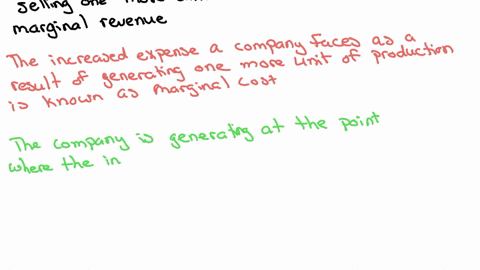 selling one more
marginal revenue
The increased expense a company faces as a
result of generating one more unit of production
is known as marginal cost
The company is generating at the point
where the in